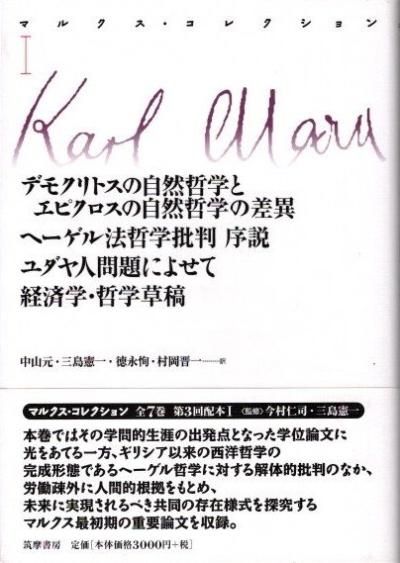 マルクス・コレクション
I
Karl Marx
デモクリトスの自然哲学と
エピクロスの自然哲学の差異
ヘーゲル法哲学批判 序説
ユダヤ人問題によせて
経済学・哲学草稿
中山元・三島憲一・徳永恂・村岡晋一———訳
マルクス・コレクション 全7巻 第3回配本 I 〈監修〉今村仁司・三島憲一
本巻ではその学問的生涯の出発点となった学位論文に
光をあてる一方、ギリシア以来の西洋哲学の
完成形態であるヘーゲル哲学に対する解体的批判のなか、
労働疎外に人間的根拠をもとめ、
未来に実現されるべき共同の存在様式を探究する
マルクス最初期の重要論文を収録。
筑摩書房 定価[本体価格3000円+税]